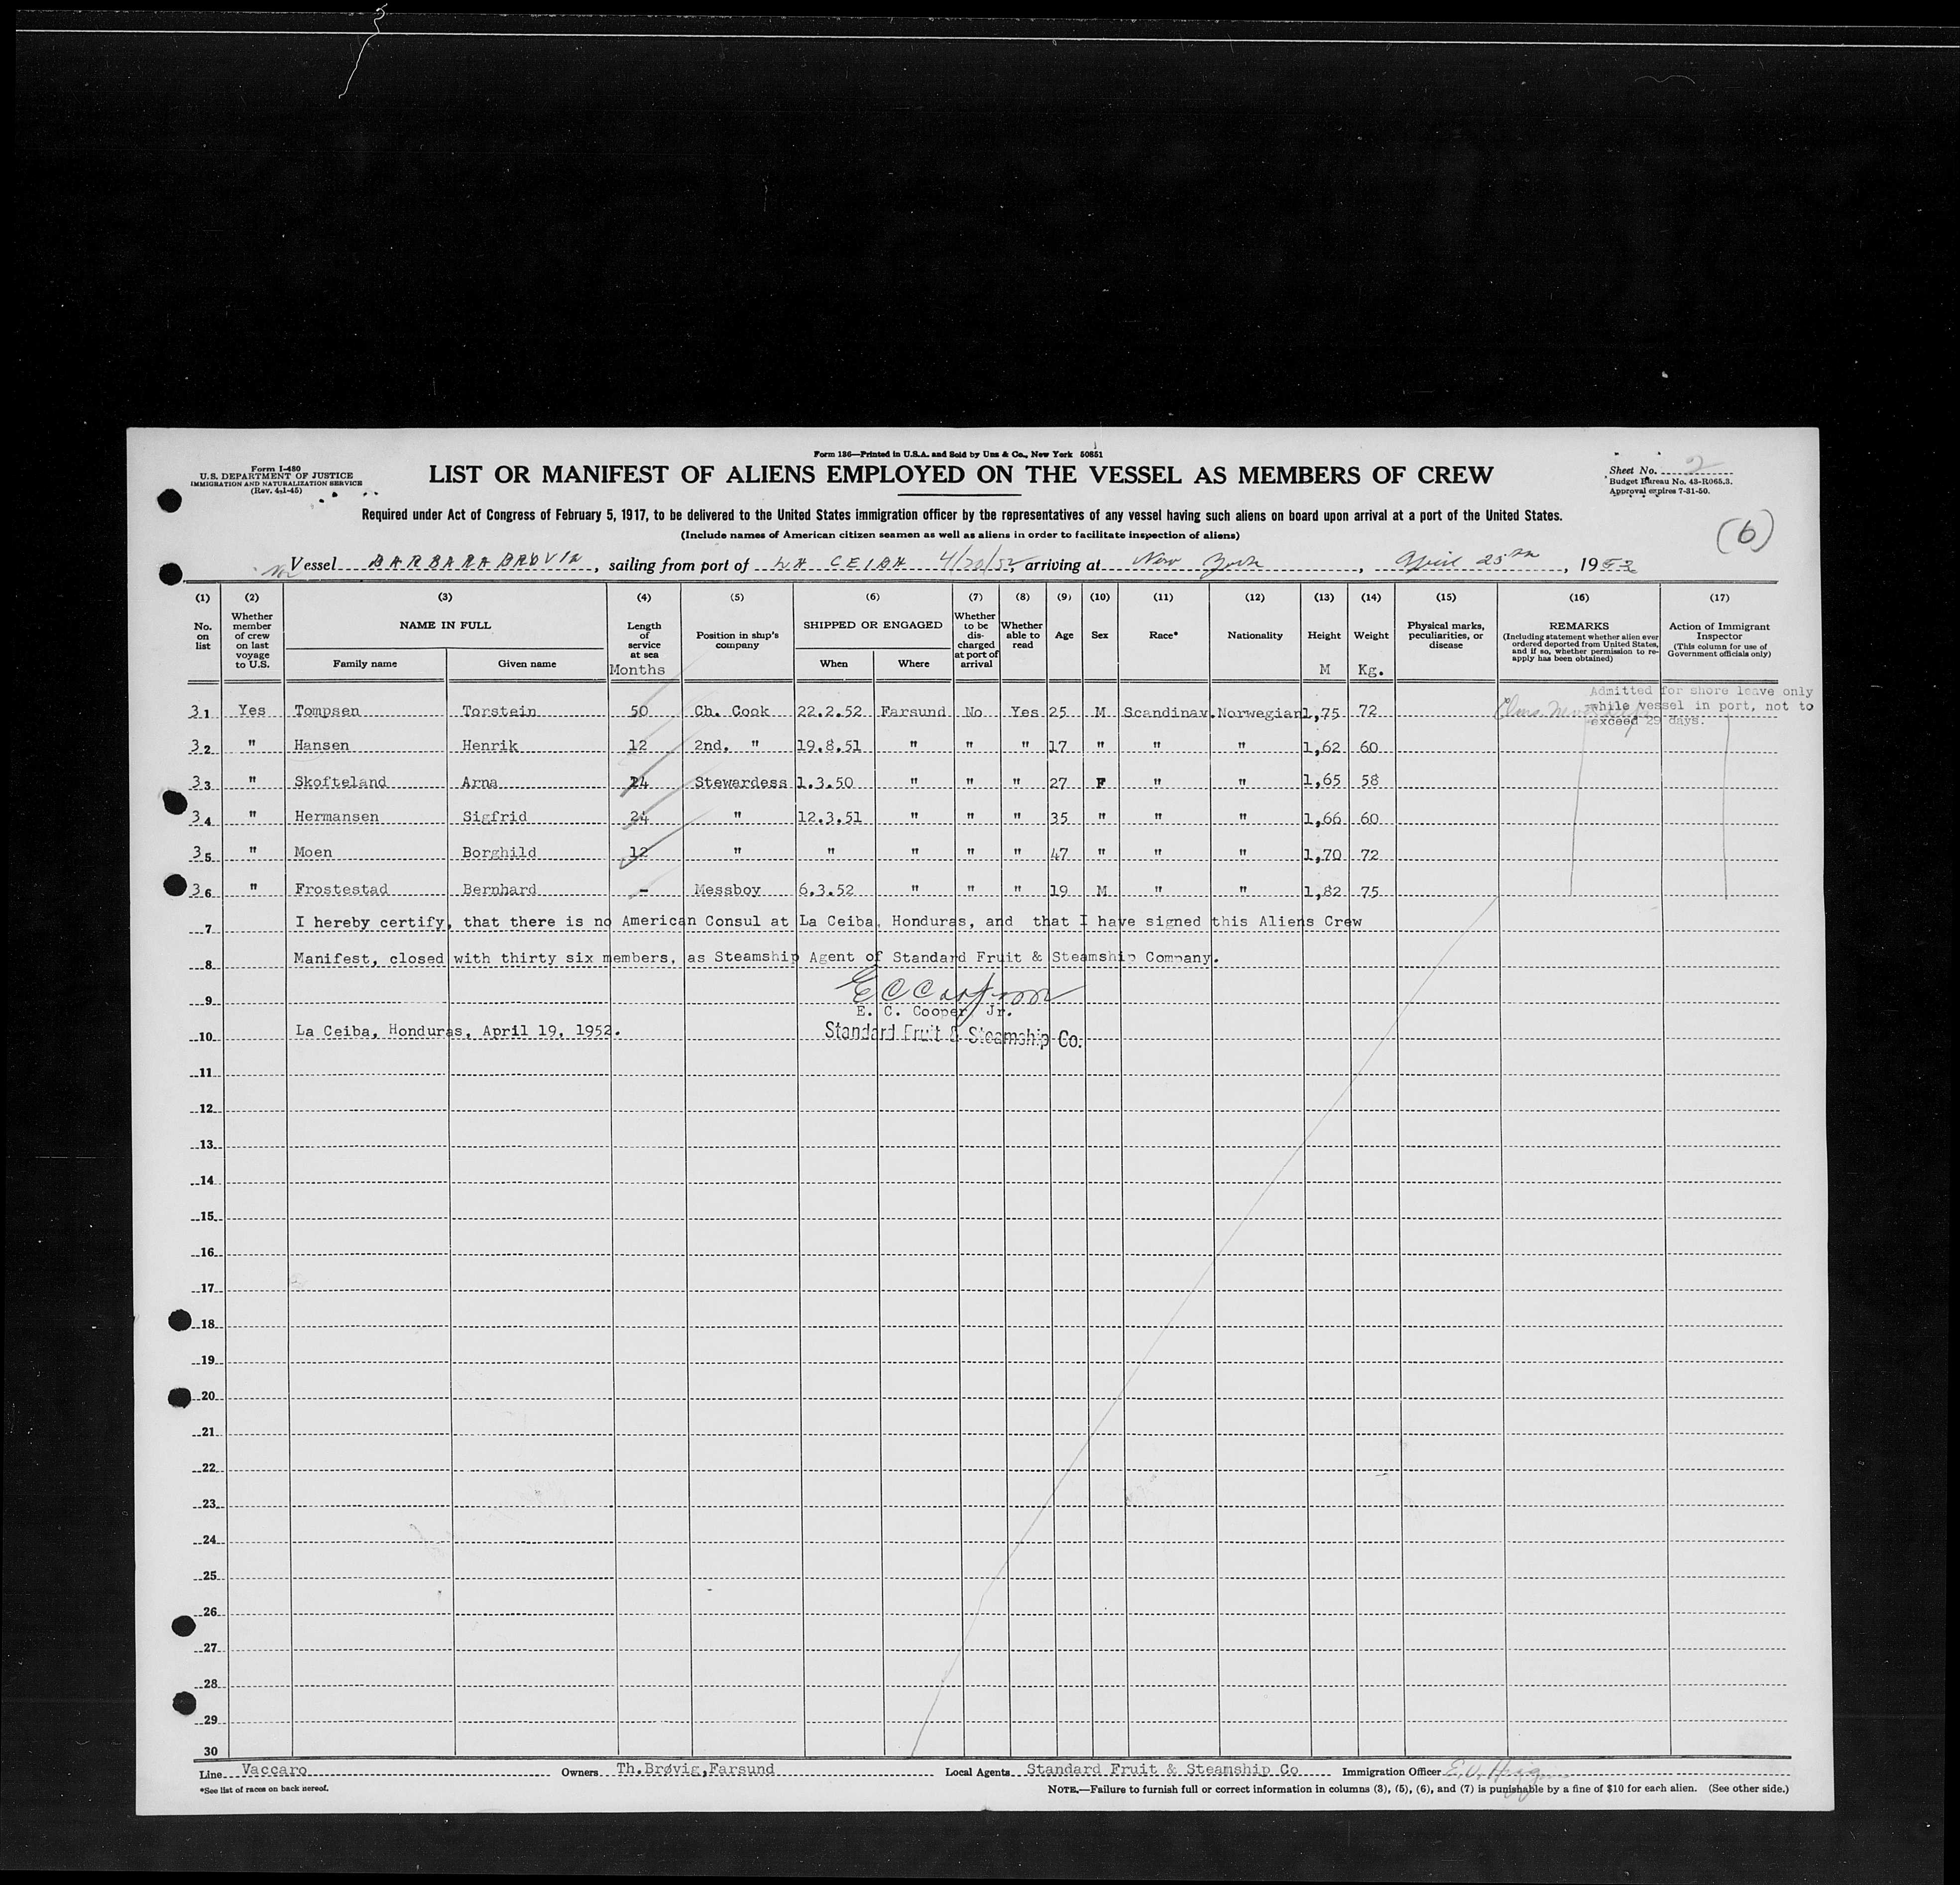 Form 136—Printed in U.S.A. and Sold by Unz & Co., New York 50851
Form I-480
U.S. DEPARTMENT OF JUSTICE
IMMIGRATION AND NATURALIZATION SERVICE
(Rev. 4-1-45)
LIST OR MANIFEST OF ALIENS EMPLOYED ON THE VESSEL AS MEMBERS OF CREW
Sheet No. 2
Budget Bureau No. 43-R065.3.
Approval expires 7-31-50.
Required under Act of Congress of February 5, 1917, to be delivered to the United States immigration officer by the representatives of any vessel having such aliens on board upon arrival at a port of the United States.
(Include names of American citizen seamen as well as aliens in order to facilitate inspection of aliens)
(6)
Vessel BARBARA BRØVIG, sailing from port of LA CEIBA 4/20/52, arriving at New York, April 25th, 1952
(1) (2) (3) (4) (5) (6) (7) (8) (9) (10) (11) (12) (13) (14) (15) (16) (17)
No. on list
Whether member of crew on last voyage to U.S.
NAME IN FULL
Family name Given name
Length of service at sea
Months
Position in ship's company
SHIPPED OR ENGAGED
When Where
Whether to be discharged at port of arrival
Whether able to read
Age
Sex
Race*
Nationality
Height
M
Weight
Kg.
Physical marks, peculiarities, or disease
REMARKS
(Including statement whether alien ever ordered deported from United States, and if so, whether permission to re-apply has been obtained)
Action of Immigrant Inspector
(This column for use of Government officials only)
Admitted for shore leave only
while vessel in port, not to
exceed 29 days.
31 Yes Tompsen Torstein 50 Ch. Cook 22.2.52 Farsund No Yes 25 M Scandinav. Norwegian 1,75 72
32 " Hansen Henrik 12 2nd. " 19.8.51 " " " 17 " " " 1,62 60
33 " Skofteland Arna 24 Stewardess 1.3.50 " " " 27 F " " 1,65 58
34 " Hermansen Sigfrid 24 " 12.3.51 " " " 35 " " " 1,66 60
35 " Moen Borghild 12 " " " " " 47 " " " 1,70 72
36 " Frostestad Bernhard - Messboy 6.3.52 " " " 19 M " " 1,82 75
7 I hereby certify, that there is no American Consul at La Ceiba, Honduras, and that I have signed this Aliens Crew
8 Manifest, closed with thirty six members, as Steamship Agent of Standard Fruit & Steamship Company.
9
E. C. Cooper, Jr.
10 La Ceiba, Honduras, April 19, 1952. Standard Fruit & Steamship Co.
11
12
13
14
15
16
17
18
19
20
21
22
23
24
25
26
27
28
29
30
Line Vaccaro Owners Th.Brøvig,Farsund Local Agents Standard Fruit & Steamship Co Immigration Officer
*See list of races on back hereof.
NOTE.—Failure to furnish full or correct information in columns (3), (5), (6), and (7) is punishable by a fine of $10 for each alien. (See other side.)